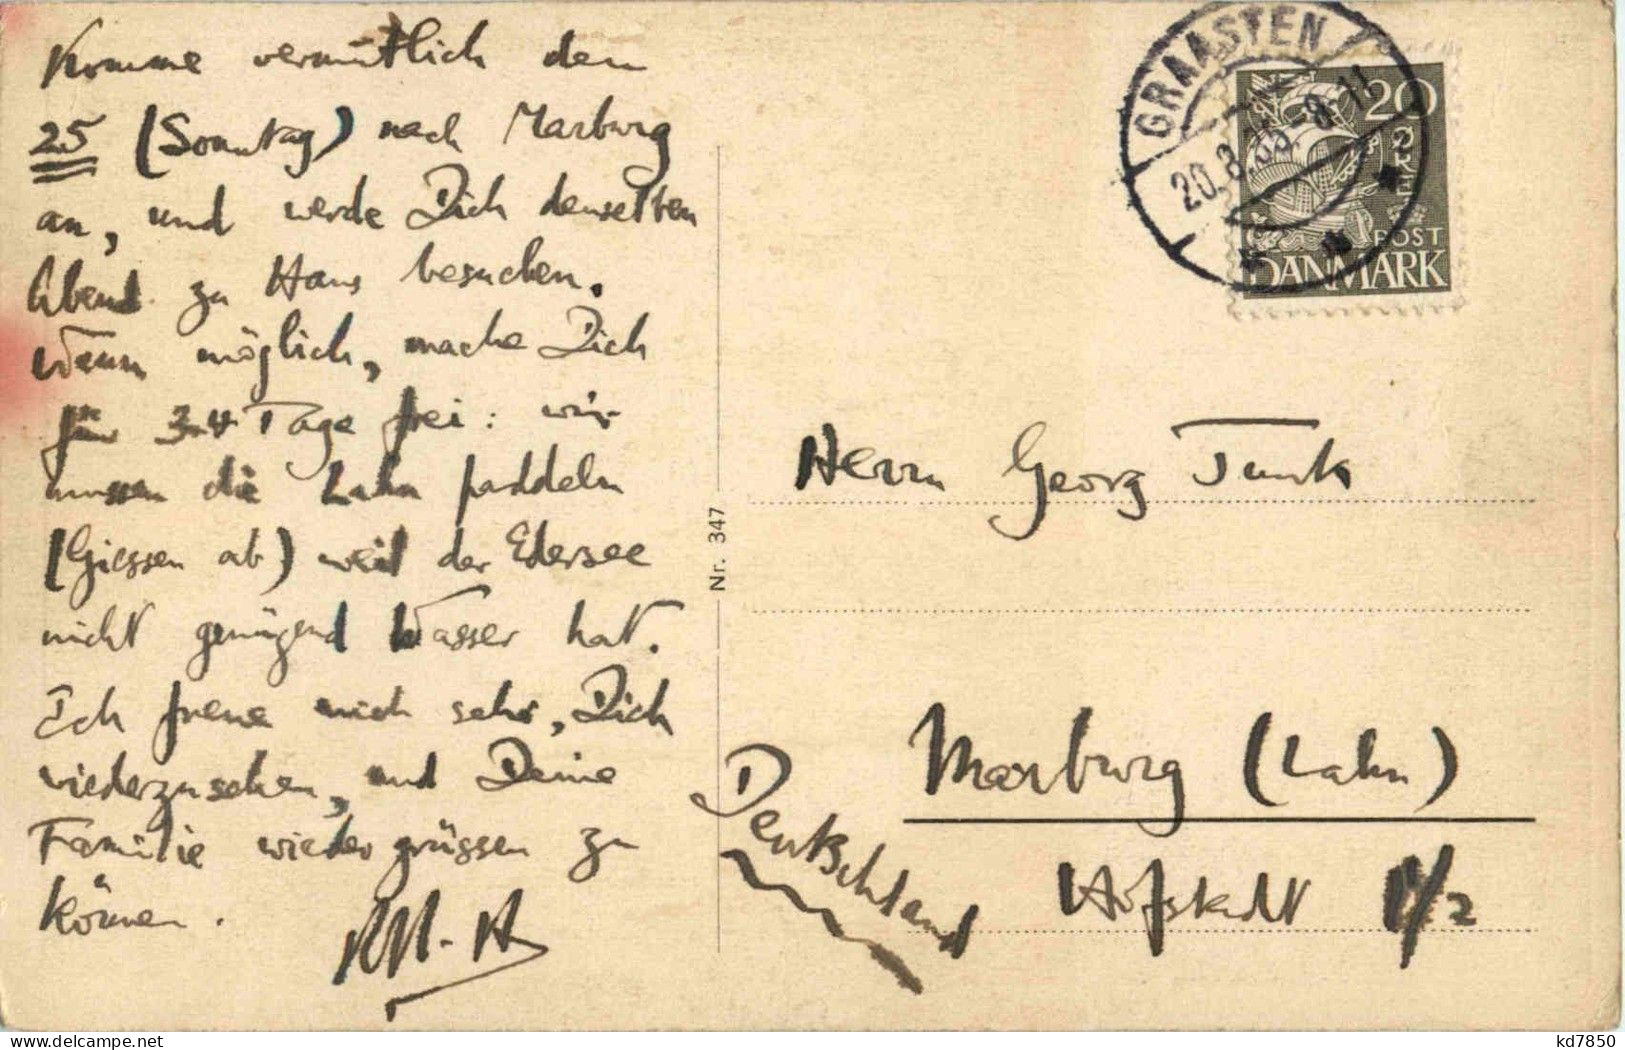 Komme vermutlich den
25 (Sonntag) nach Marburg
an, und werde Dich denselben
Abend zu Haus besuchen.
Wenn möglich, mache Dich
für 3-4 Tage frei: wir
mussen die Lahn paddeln
(Giessen ab) weil der Edersee
nicht genügend Wasser hat.
Ich freue mich sehr, Dich
wiederzusehen, und Deine
Familie wieder grüssen zu
können.
Nr. 347
GRAASTEN
20.8.35. 8-11
20
POST
DANMARK
Herrn Georg Junk
Marburg (Lahn)
Hofstadt 1/2
Deutschland
hip-postcard.com
kd7850